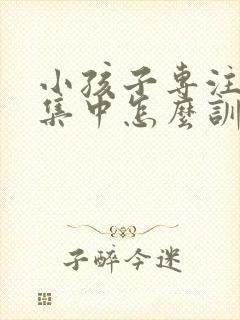 小孩子專注
集中怎麼訓
子醉今迷